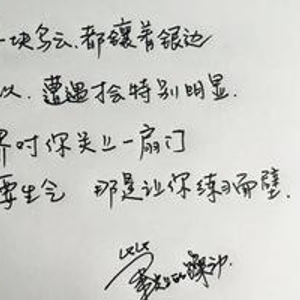 一块乌云.都镶着银边
以.遭遇才会特别明显.
界对你关上一扇门
要生气 那是让你练习面壁.